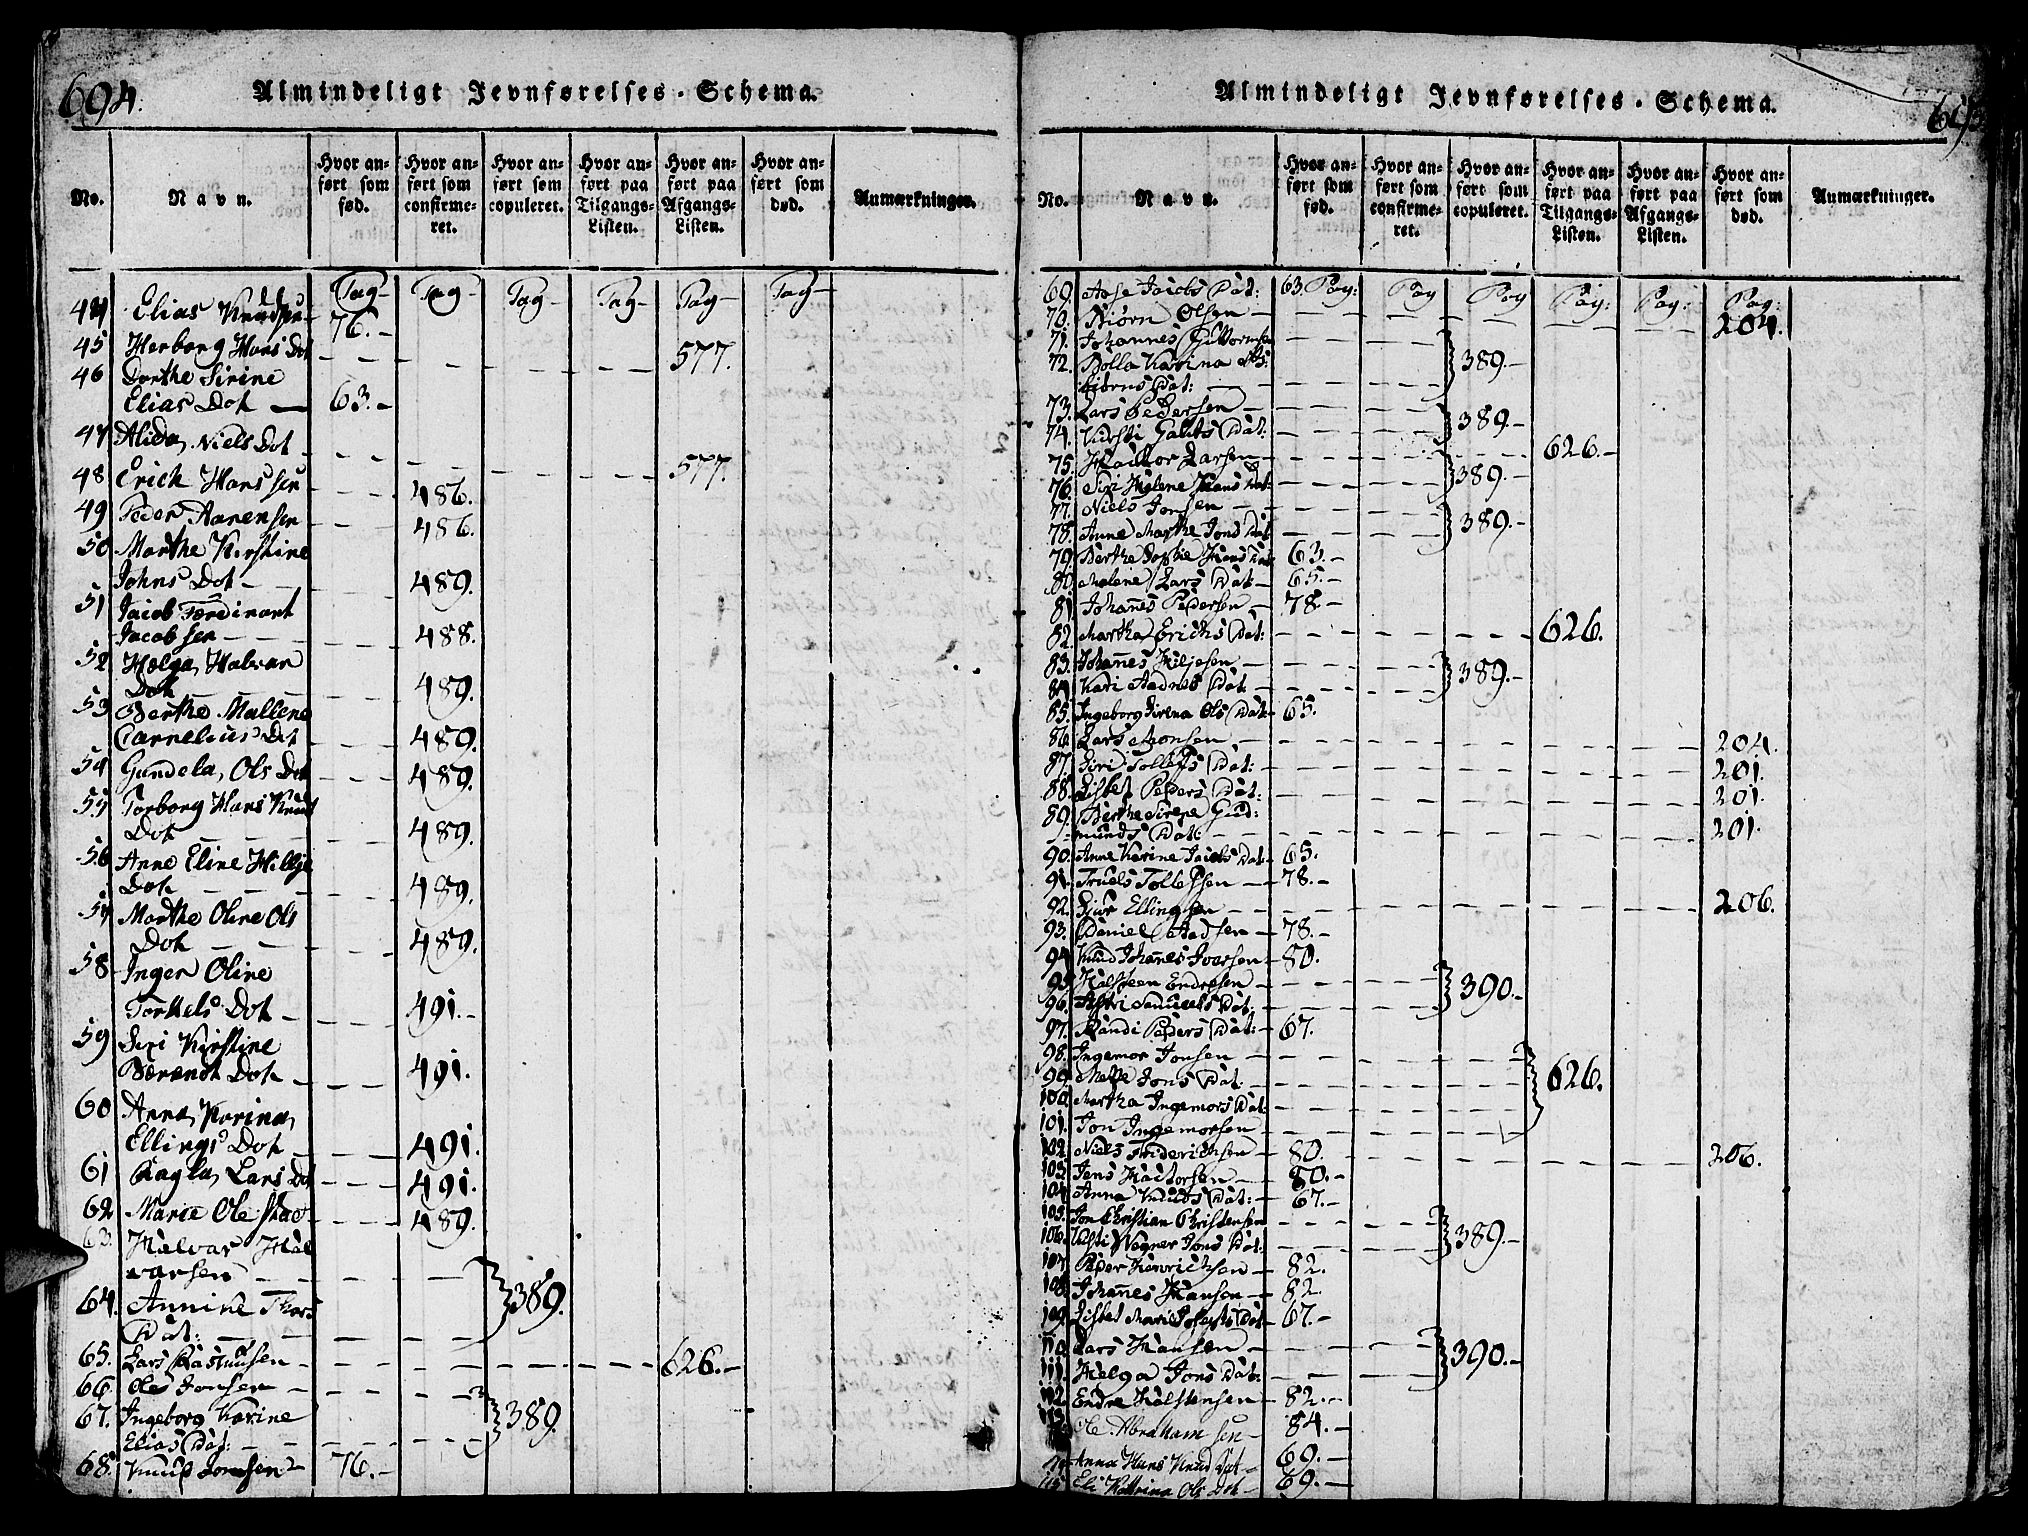 694.
Almindeligt Jevnførelses-Schema.
No. Navn. Hvor anført som fød. Hvor anført som confirmeret. Hvor anført som copuleret. Hvor anført paa Tilgangs-Listen. Hvor anført paa Afgangs-Listen. Hvor anført som død. Anmærkninger.
Pag Pag Pag Pag Pag Pag
44 Elias Knudsen 76.
45 Herborg Hans Dot 577.
46 Dorthe Sirine
Elias Dot 63.
47 Alida Niels Dot 577.
48 Erich Hanssen 486.
49 Peder Aarensen 486.
50 Marthe Kirstine
Johns Dot 489.
51 Jacob Ferdinant
Jacobsen 488.
52 Helga Halvar
Dot 489.
53 Berthe Mallene
Cornelius Dot 489.
54 Gundela Ols Dot 489.
55 Torborg Hans Knud
Dot 489.
56 Anne Eline Hillje
Dot 489.
57 Marthe Oline Ols
Dot 489.
58 Inger Oline
Torkels Dot 491.
59 Siri Kirstine
Berendt Dot 491.
60 Anna Karina
Ellings Dot 491.
61 Ragla Lars Dot 491.
62 Marie Ole 489.
63. Halvar Hal
varsen
64. Annine Thors
Dat: 389.
65. Lars Rasmusen 626.
66. Ole Jonsen
67. Ingeborg Karine
Elias Dat: 389.
68. Knud Jonsen 76.
Almindeligt Jevnførelses-Schema.
No. Navn. Hvor anført som fød. Hvor anført som confirmeret. Hvor anført som copuleret. Hvor anført paa Tilgangs-Listen. Hvor anført paa Afgangs-Listen. Hvor anført som død. Anmærkninger.
69. Aase Jacobs Dat: 63. Pag: Pag Pag Pag: Pag: Pag:
70. Biørn Olsen 204.
71. Johannes Guttormsen
72. Bolla Karina As
biørns Dat: 389.
73. Lars Pedersen
74. Kirsti Gabits Dat: 389.
75. Hactor Larsen 626.
76. Siri Helene Hans Dat: 389.
77. Niels Jonsen
78. Anne Marthe Jons Dat 389.
79. Berthe Sophie Hans Dat 63.
80. Malene Lars Dat 65.
81. Johannes Pedersen 78.
82. Martha Erichs Dat: 626.
83. Johannes Hiljesen
84. Kari Aadnes Dat 389.
85. Ingeborg Sirena Ols Dat 65.
86. Lars Monsen 204.
87. Siri Tollefs Dat: 201.
88. Lisbet Peders Dat: 201.
89. Berthe Sirene Gud
munds Dat: 201.
90. Anne Karine Jacobs Dat 65.
91. Truels Tollefsen 78.
92. Siur Ellingsen 206.
93. Daniel Aadsen 78.
94. Knud Johannes Iversen 80.
95. Halsteen Endresen
96. Astri Samuels Dat: 390.
97. Randi Peders Dat: 67.
98. Ingemor Jonsen
99. Mette Jons Dat 626.
100. Martha Ingemors Dat:
101. Jon Ingemorsen
102. Niels Friderichsen 80. 206.
103. Jens Hactorsen 80.
104. Anna Knuds Dat: 67.
105. Jon Christian Christensen
106. Kisti Wegner Jons Dat: 389.
107. Peder Henrichsen 82.
108. Johannes Hansen 82.
109. Lisbet Marie Josephs Dat 67.
110. Lars Hansen
111. Helga Jons Dat: 390.
112. Endre Halstensen 82.
113. Ole Abrahamsen 84.
Anna Hans Knud Dat 69.
115 Eli Kattrina Ols Dot 69.